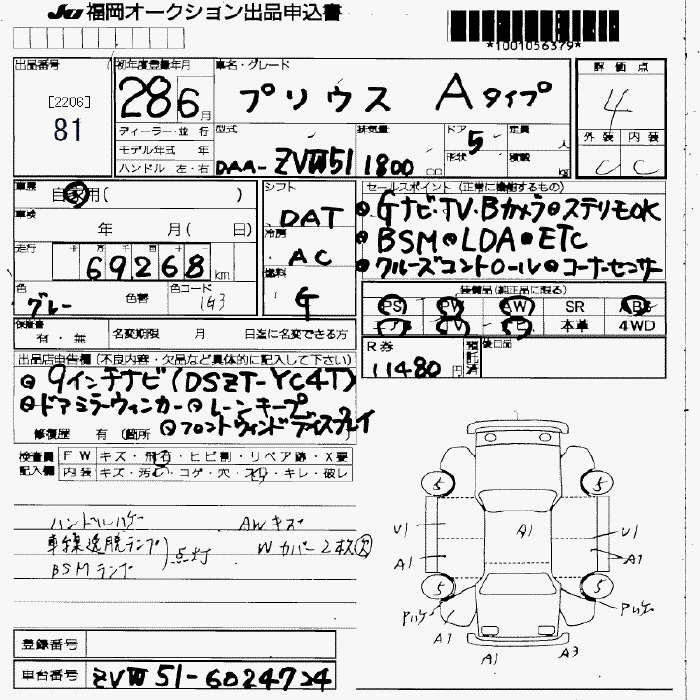 JU 福岡オークション出品申込書
*1001056379*
出品番号 [2206] 81
初年度登録年月 28 6月
車名・グレード プリウス Aタイプ
評価点 4
外装 内装 C C
ディーラー・並 行
モデル年式 年
ハンドル 左・右
型式 DAA-ZVW51
排気量 1800 CC
ドア 5 形状
定員 人 積載 kg
車歴 自家用( )
車検 年 月( 日)
走行 69268 km
色 グレー 色替 色コード 1G3
シフト DAT
冷房 AC
燃料 G
セールスポイント (正常に機能するもの)
⊙Gナビ・TV・Bカメラ⊙ステリモOK
⊙BSM⊙LDA⊙ETC
⊙クルーズコントロール⊙コーナーセンサー
装備品(純正品に限る)
PS PW AW SR ABS
エア TV ナビ 本革 4WD
R券 11480円 預託済 後日品
保証書 有・無 名変期限 月 日迄に名変できる方
出品店申告欄(不良内容・欠品など具体的に記入して下さい)
⊙9インチナビ(DSZT-YC4T)
⊙ドアミラーウィンカー⊙レーンキープ
⊙フロントウィンドディスプレイ
修復歴 有 (箇所
検査員記入欄
FW キズ・飛石・ヒビ割・リペア跡・X要
内装 キズ・汚れ・コゲ・穴・スレ・キレ・破レ
ハンドルハゲ AWキズ
車線逸脱ランプ 点灯 Wカバー2本欠
BSMランプ
5 5
U1 A1 U1
A1 A1
5 5
Pハゲ Pハゲ
A1 A1 A3
登録番号
車台番号 ZVW51-6024724